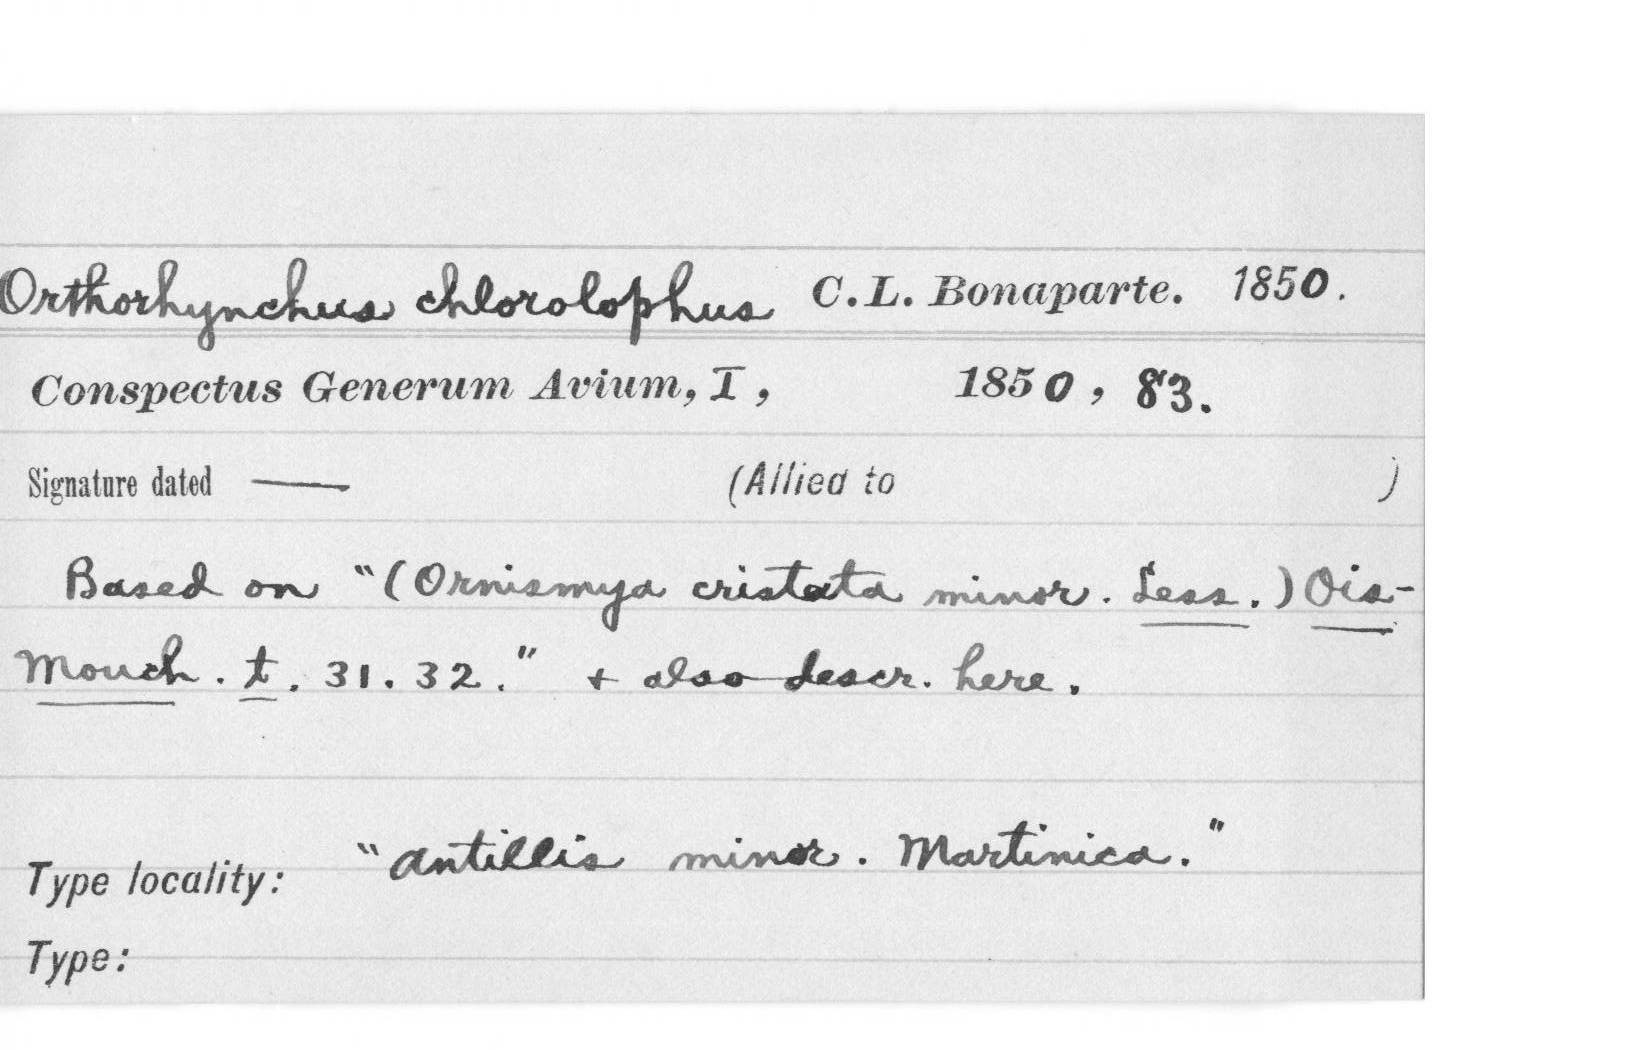 Orthorhynchus chlorolophus C. L. Bonaparte. 1850.
Conspectus Generum Avium, I, 1850, 83.
Signature dated — (Allied to )
Based on "(Ornismya cristata minor. Less.) Ois-
Mouch. t. 31. 32." + also descr. here.
Type locality: "Antillis minor. Martinica."
Type: